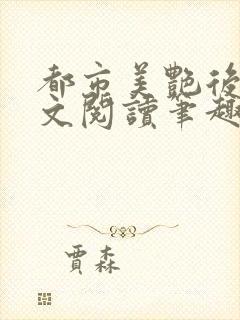 都市美艷後
文閱讀筆趣
賈森